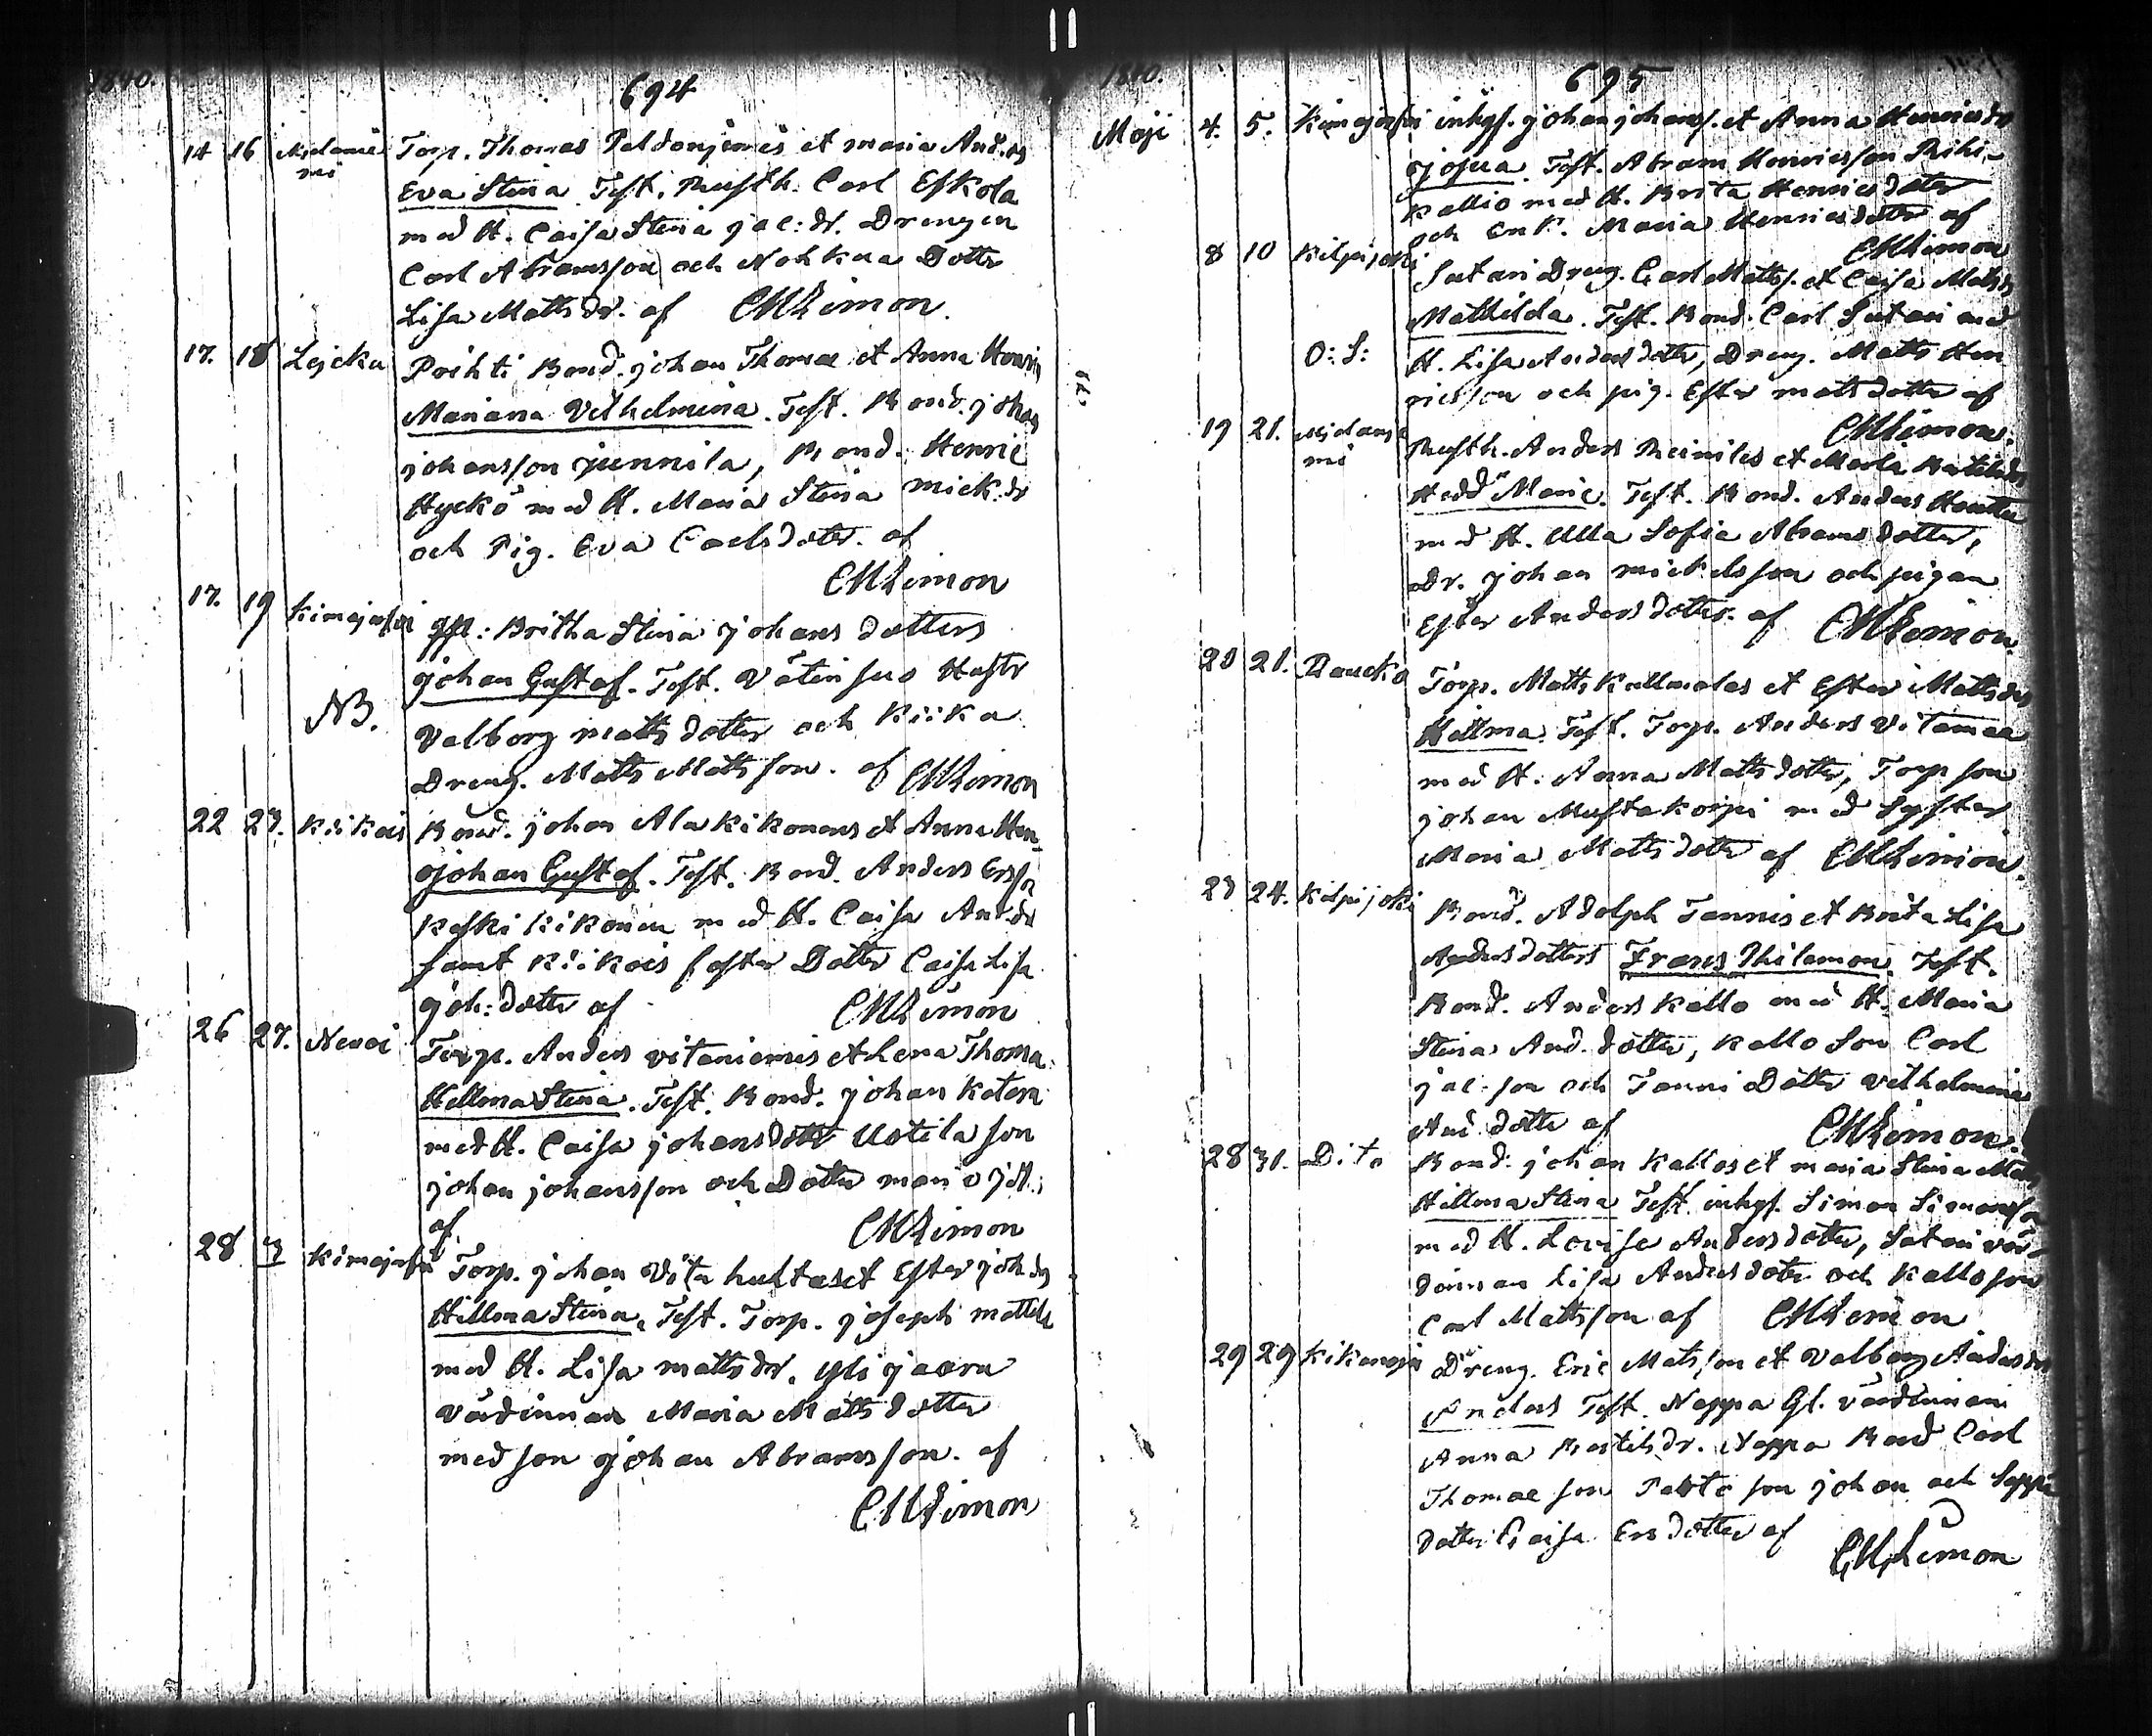 1840.
694
14 16 Torp. Thomas Peldonjemis et maria And. ds
Eva Stina. Test. Rusth. Carl Eskola
med H. Caisa Stina jac: dr. Drengen
Carl Abramsson och Nohkua Dotter
Lisa Matts dr. af CMLimon.
17. 18 Lejcku Prihti Bond. johan Thomae et Anna Henric
Mariana Vilhelmina. Test. Bond. johan
johansson junnila, Bond. Henric
Hyckö med H. Maria Stina mick. dr
och Pig. Eva Carlsdoter. af
CMLimon
17. 19 Kimejofvi gft: Britha Stina johans dotters
NB. johan Gustaf. Test. Vätinsuo Hustr
Valborg matts dotter och Kiika
Dreng. Matts Matts son. af CMLimon
22 23. Kiikois Bond. johan Alakikonens et Anna Hen-
johan Gustaf. Test. Bond. Anders Erss
Keski kikonen med H. Caisa And. dr
samt Kiikois foster Dotter Caisa Lisa
joh: dotter af CMLimon
26 27. Nevoi Torp. Anders vitaniemis et Lena Thoma.
Hellma Stina. Test. Bond. johan Ketara
med H. Caisa johansdotter Uotila son
johan johansson och Dotter maria
af CMLimon
28 3 Torp. johan Vitahuhtas et Ester joh ds
Hillma Stina. Test. Torp. joseph mattils
med H. Lisa matts dr. yli jaara
värdinnan Maria Matts dotter
med son johan Abramsson. af
CMLimon
1840.
695
Maji 4. 5. inhys. johan johanss. et Anna Henricsdr
josua. Test. Abram Henricsson Rihi-
kallio med H. Brita Henricsdoter
och Enk. Maria Henricsdotter af
CMLimon
8 10 Kilpijoki Sutari Dreng. Carl Matts. et Caisa Matsds
Mathilda. Test. Bond. Carl Sutari med
O: S: H. Lisa Andersdotter, Dreng. Matts Hen
ricsson och pig. Ester mattsdotter af
CMLimon.
19 21. Rusth. Anders Reiniles et Maria Bertilsdr
Hedd Marie. Test. Bond. Anders
med H. Ulla Sofia Abramsdotter,
Dr. johan mickelsson och pigan
Ester Andersdotter. af CMLimon.
20 21. Raucko Torp. Matts Kallmalas et Ester Matts drs
Hellma. Test. Torp. Anders Vitamaa
med H. Anna Mattsdotter, Torp son
johan Mustakorpi med Syster
Maria Mattsdotr af CMLimon.
23 24. Kilpijoki Bond. Adolph Tannis et Brita Lisa
Andersdotters Frans Philemon. Test.
Bond. Anders Kallo med H. Maria
Stina And. dotter, Kallo Son Carl
jac-son och Tanni Dotter vilhelmina
And dotter af CMLimon.
28 31. Dito Bond. johan Kallos et maria Stina Matts
Hillma Stina Test. inhys. Simon Simonsson
med H. Lovisa Andersdotter, Sutari vär-
dinnan Lisa Andersdoter och Kallo son
Carl Mattsson af CMLimon
29 29 Dreng. Eric Matsson et Valborg Andersdr
Anders Test. Nappa Gl. värdinnan
Anna Bertils dr. Nappa Bond Carl
Thomae son Pertto son johan och Seppä
dotter Caisa Ersdotter af
CMLimon